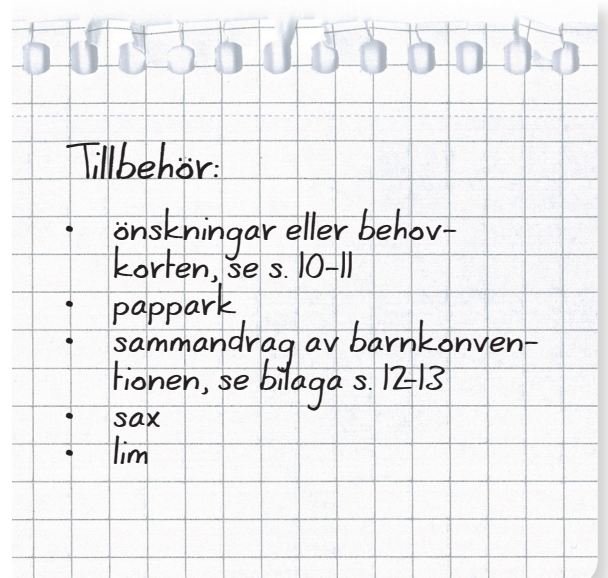 Tillbehör:
• önskningar eller behov-
korten, se s. 10-11
• pappark
• sammandrag av barnkonven-
tionen, se bilaga s. 12-13
• sax
• lim